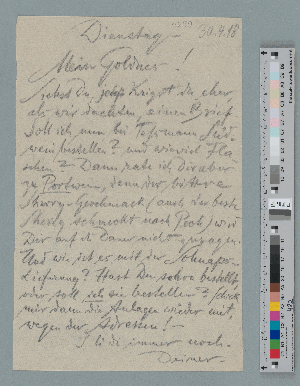 Dienstag 30.4.18
Mein Goldner!
siehst Du, jetzt kriegst du eher,
als wir dachten, einen Brief.
Soll ich nun bei Südwein
bestellen? und wieviel Flaschen?
Dann rate ich darüber
zu Portwein, denn der bittere
Sherry-Geschmack (auch der beste
Sherry schmeckt nach Pech) wird
Dir auf die Dauer nicht zusagen.
Und wie ist es mit der Schnaps-
Lieferung? Hast Du schon bestellt
oder soll ich sie bestellen? Schick
mir dann die Anlagen wieder mit,
wegen der Adressen! –
immer noch
Deiner